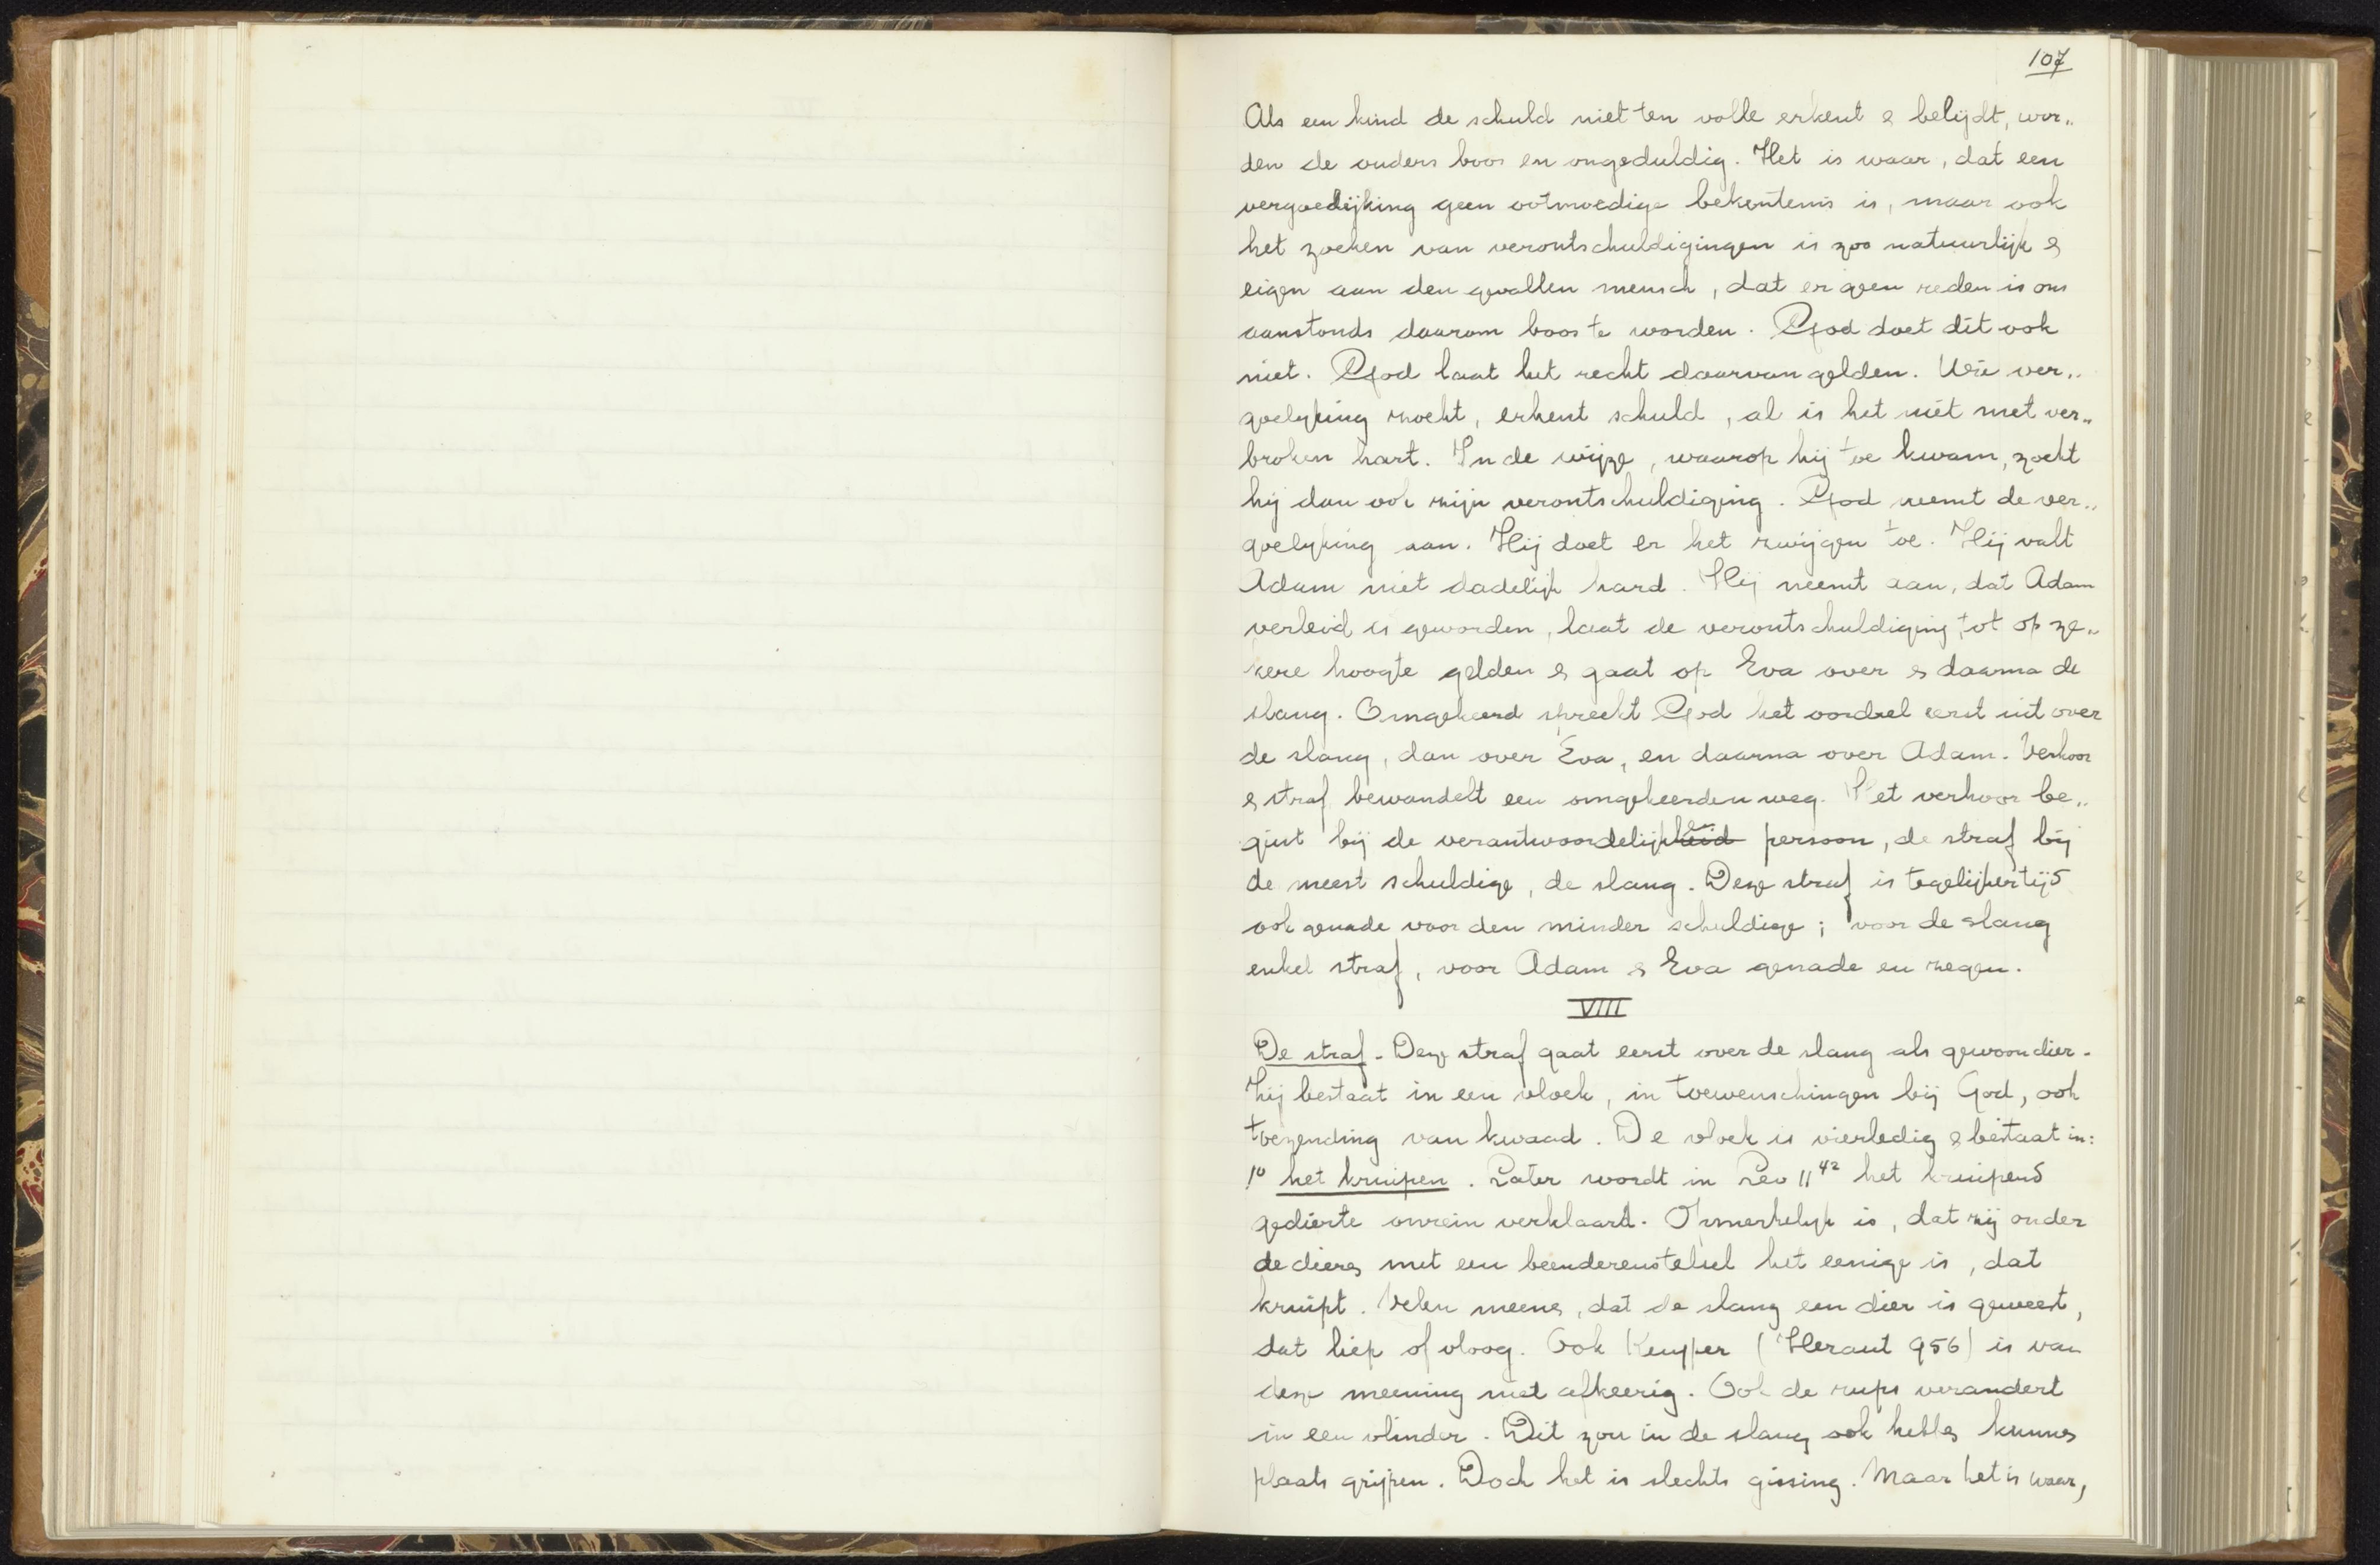 107
Als een kind de schuld niet ten volle erkent & belijdt, wor„
den de ouders boos en ongeduldig. Het is waar, dat een
vergoedijking geen ootmoedige bekentenis is, maar ook
het zoeken van verontschuldigingen is zoo natuurlijk &
eigen aan den gevallen mensch, dat er geen reden is om
aanstonds daarom boos te worden. God doet dit ook
niet. God laat het recht daarvan gelden. Wie ver„
goelijking zoekt, erkent schuld, al is het niet met ver„
broken hart. In de wijze, waarop hij toe kwam, zocht
hij dan ook zijn verontschuldiging. God neemt de ver„
goelijking aan. Hij doet er het zwijgen toe. Hij valt
Adam niet dadelijk hard. Hij neemt aan, dat Adam
verleid is geworden, laat de verontschuldiging tot op ze„
kere hoogte gelden & gaat op Eva over & daarna de
slang. Omgekeerd spreekt God het oordeel eerst uit over
de slang, dan over Eva, en daarna over Adam. Verhoor
& straf bewandelt een omgekeerden weg. Het verhoor be„
gint bij de verantwoordelijkheid persoon, de straf bij
de meest schuldige, de slang. Deze straf is tegelijkertijd
ook genade voor den minder schuldige; voor de slang
enkel straf, voor Adam & Eva genade en zegen.
VIII
De straf. Deze straf gaat eerst over de slang als gewoon dier.
Zij bestaat in een vloek, in toewenschingen bij God, ook
toezending van kwaad. De vloek is vierledig & bestaat in:
1° het kruipen. Later wordt in Lev 11⁴² het kruipend
gedierte onrein verklaard. Opmerkelijk is, dat zij onder
de dieren met een beenderenstelsel het eenige is, dat
kruipt. Velen meenen, dat de slang een dier is geweest,
dat liep of vloog. Ook Kuyper (Heraut 956) is van
deze meening niet afkeerig. Ook de rups verandert
in een vlinder. Dit zou in de slang ook hebben kunnen
plaats grijpen. Doch het is slechts gissing. Maar het is waar,